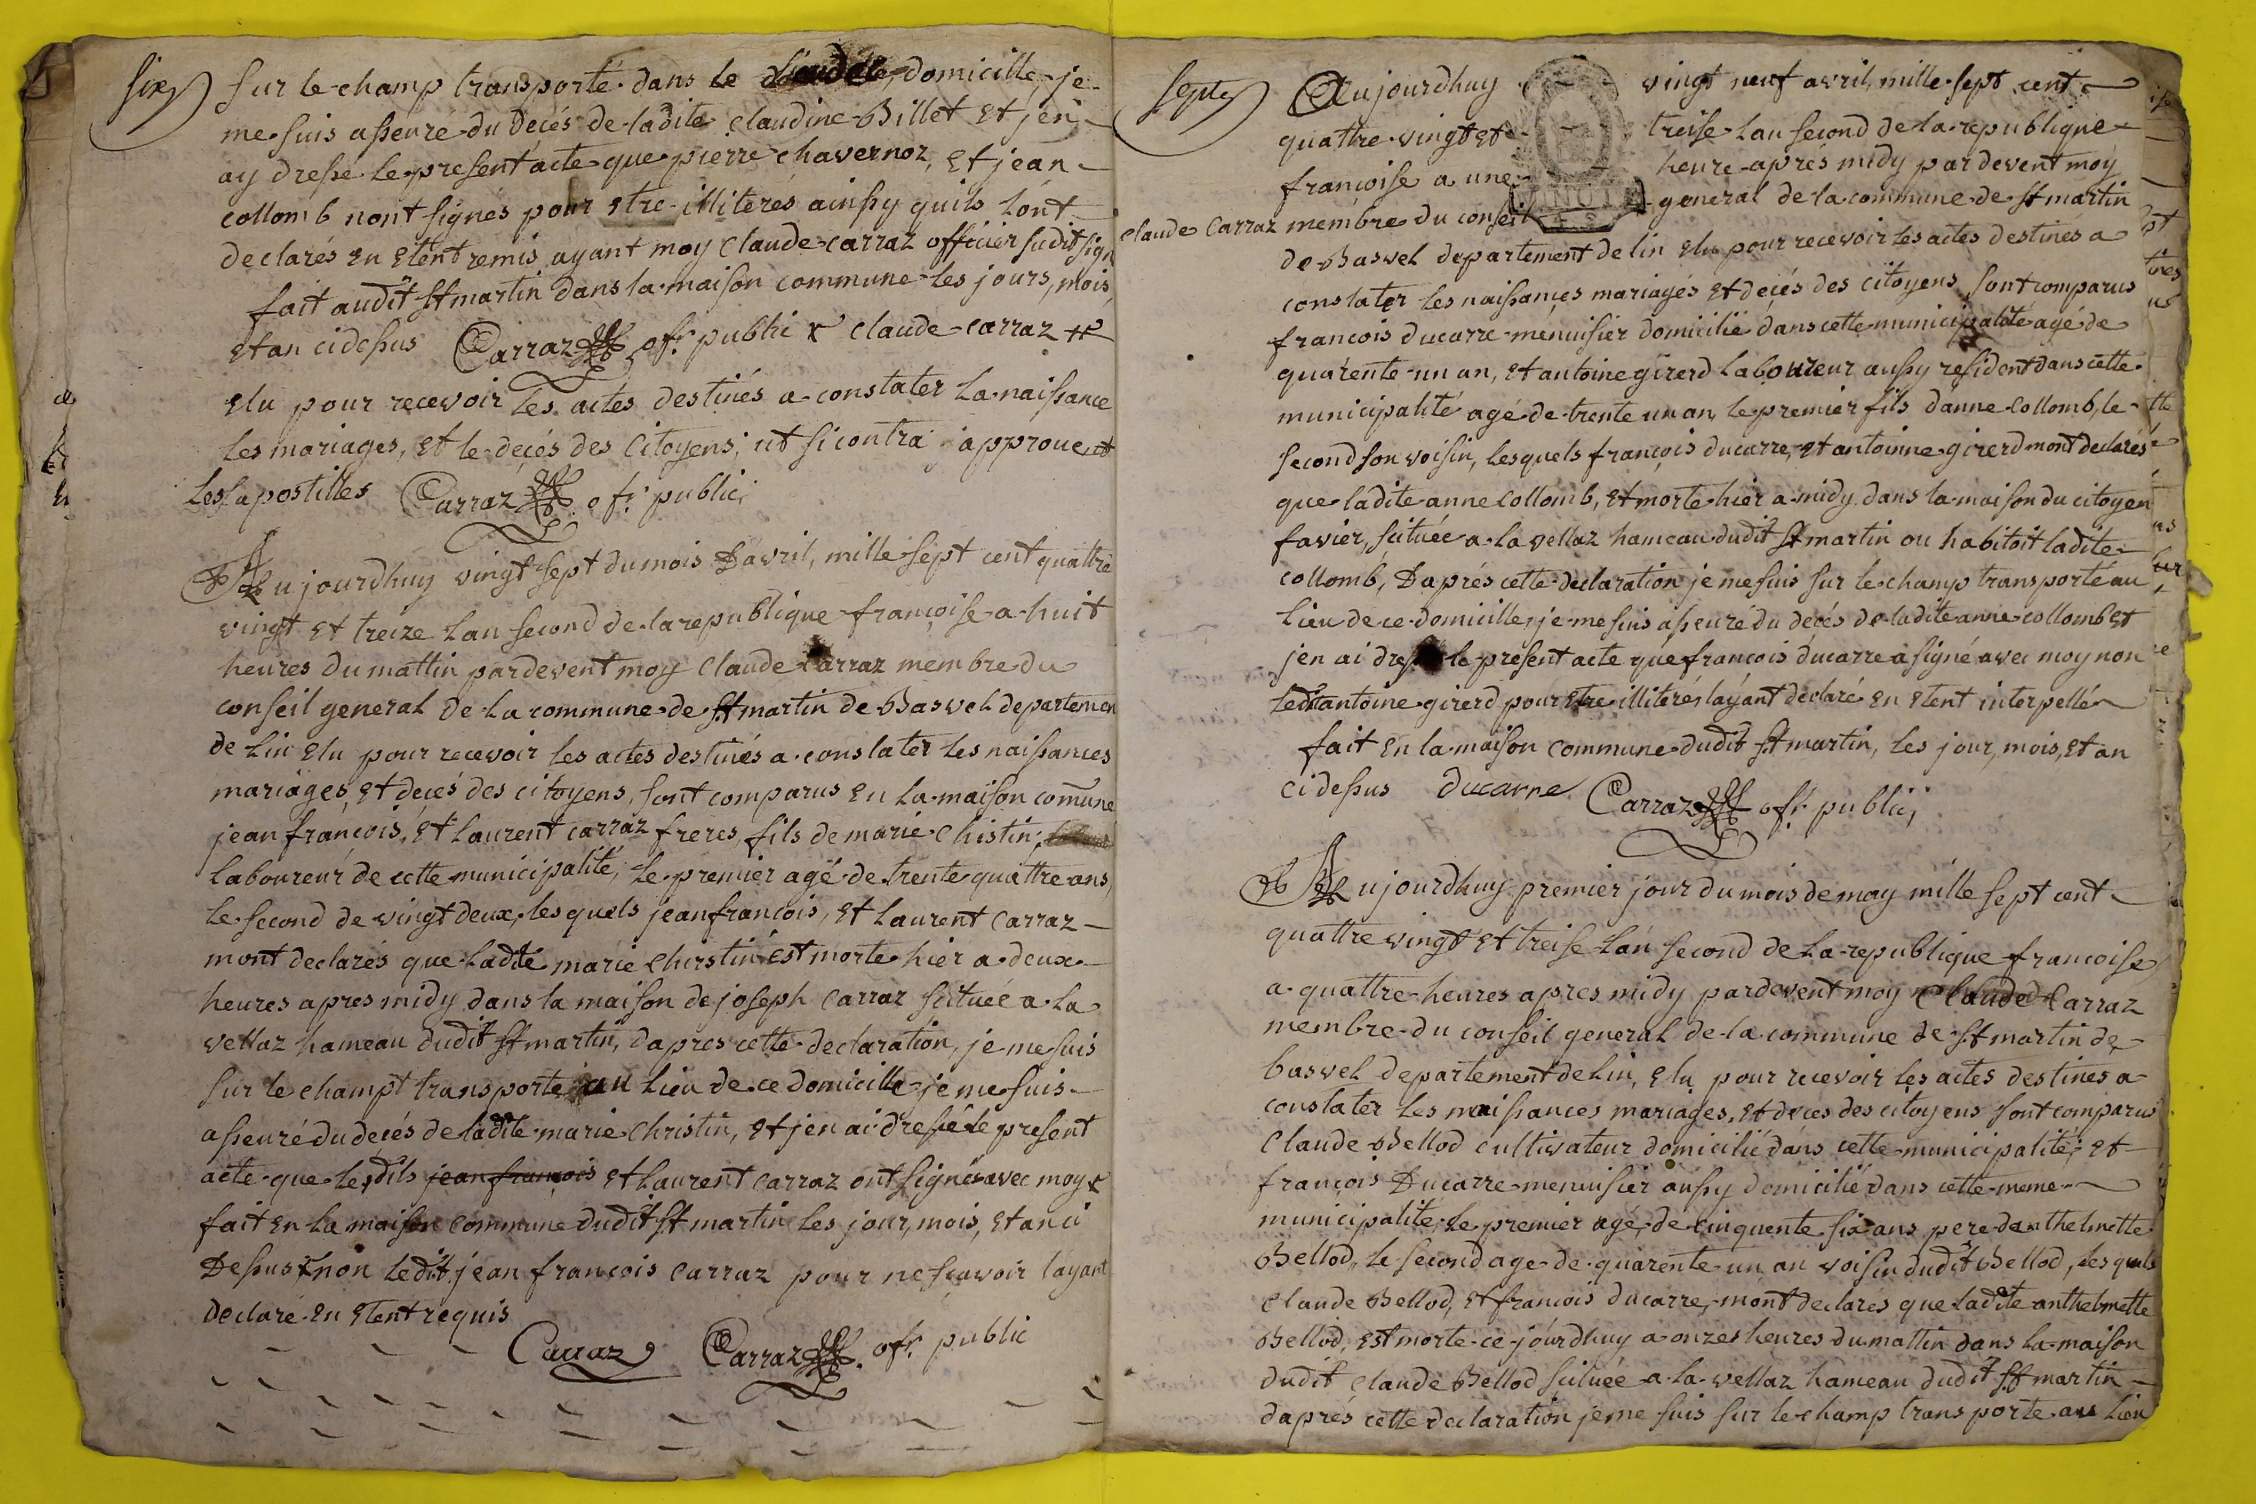 six
sur le champ transporté dans le domicille, je
me suis asseuré du decés de ladite claudine Billet et jen
ay dressé le present acte que pierre chavernoz, et jean
collomb nont signés pour etre illiterés ainssy quils lont
declarés en etent remis ayant moy claude carraz officier sudit sign
fait audit St martin dans la maison commune les jours, mois,
et an cidessus Carraz ofr public x claude carraz
elu pour recevoir les actes destinés a constater la naissance
les mariages, et le decés des citoyens; ut si contra japprouent
les apostilles Carraz ofr public;
Aujourdhuy vingt sept du mois Davril, mille sept cent quattre
vingt et treize lan second de la republique françoise a huit
heures du mattin pardevent moy claude carraz membre du
conseil general de la commune de St martin de Bavel departemen
de lin elu pour recevoir les actes destinés a constater les naissances
mariages, et decés des citoyens, sont comparus en la maison comune
jean francois, et laurent carraz freres, fils de marie christin,
laboureur de cette municipalité, le premier agé de trente quattre ans,
le second de vingt deux, les quels jean francois, et laurent carraz
mont declarés que ladite marie christin est morte hier a deux
heures apres midy dans la maison de joseph carraz scituée a la
vellaz hameau dudit St martin, dapres cette declaration, je me suis
sur le champt transporté au lieu de ce domicille je me suis
asseuré du decés de ladite marie christin, et jen ai dressé le present
acte que lesdits jean francois et laurent carraz ont signés avec moy x
fait en la maison commune dudit St martin les jour, mois, et an ci
dessus x non ledit jean francois carraz pour ne sçavoir layant
declaré en etent requis
Carraz Carraz ofr public
septe
Aujourdhuy vingt neuf avril, mille sept cent
quattre vingt et treise lan second de la republique
francoise a une heure aprés midy par devent moy
claude carraz membre du conseil general de la commune de St martin
de Bavel departement de lin elu pour recevoir les actes destinés a
constater les naissances mariagés et decés des citoyens, sont comparus
francois ducarre menuisier domicilié dans cette municipalité agé de
quarente un an, et antoine girerd laboureur aussy resident dans cette
municipalité agé de trente un an, le premier fils danne collomb, le
second son voisin, lesquels françois ducarre, et antoinne girerd mont declarés
que ladite anne collomb, et morte hier a midy dans la maison du citoyen
favier, scituée a la vellaz hameau dudit St martin ou habitoit ladite
collomb, Daprés cette declaration je me suis sur le champ transporté au
lieu de ce domicille, je me suis asseuré du décés de ladite anne collomb et
jen ai dressé le present acte que francois ducarre a signé avec moy non
ledit antoine girerd pour etre illiterés layant declaré en etent interpellé
fait en la maison commune dudit St martin, les jour, mois, et an
cidessus ducarre Carraz ofr public;
Aujourdhuy premier jour du mois de may mille sept cent
quattre vingt et treise lan second de la republique francoise
a quattre heures apres midy pardevent moy Claude Carraz
membre du conseil general de la commune de St martin de
bavel departement de lin, elu pour recevoir les actes destines a
constater les naissances mariages, et deces des citoyens sont comparus
Claude Bellod cultivateur domicilié dans cette municipalité; et
françois Ducarre menuisier aussy domicilié dans cette meme
municipalite, le premier agé, de cinquente six ans pere danthelmette
Bellod, le second age de quarente un an voisin dudit Bellod, les quels
Claude Bellod, et francois ducarre, mont declarés que ladite anthelmette
Bellod, est morte ce jourdhuy a onzes heures du mattin dans la maison
dudit claude Bellod scituée a la vellaz hameau dudit St martin
daprés cette declaration je me suis sur le champ transporte au lieu